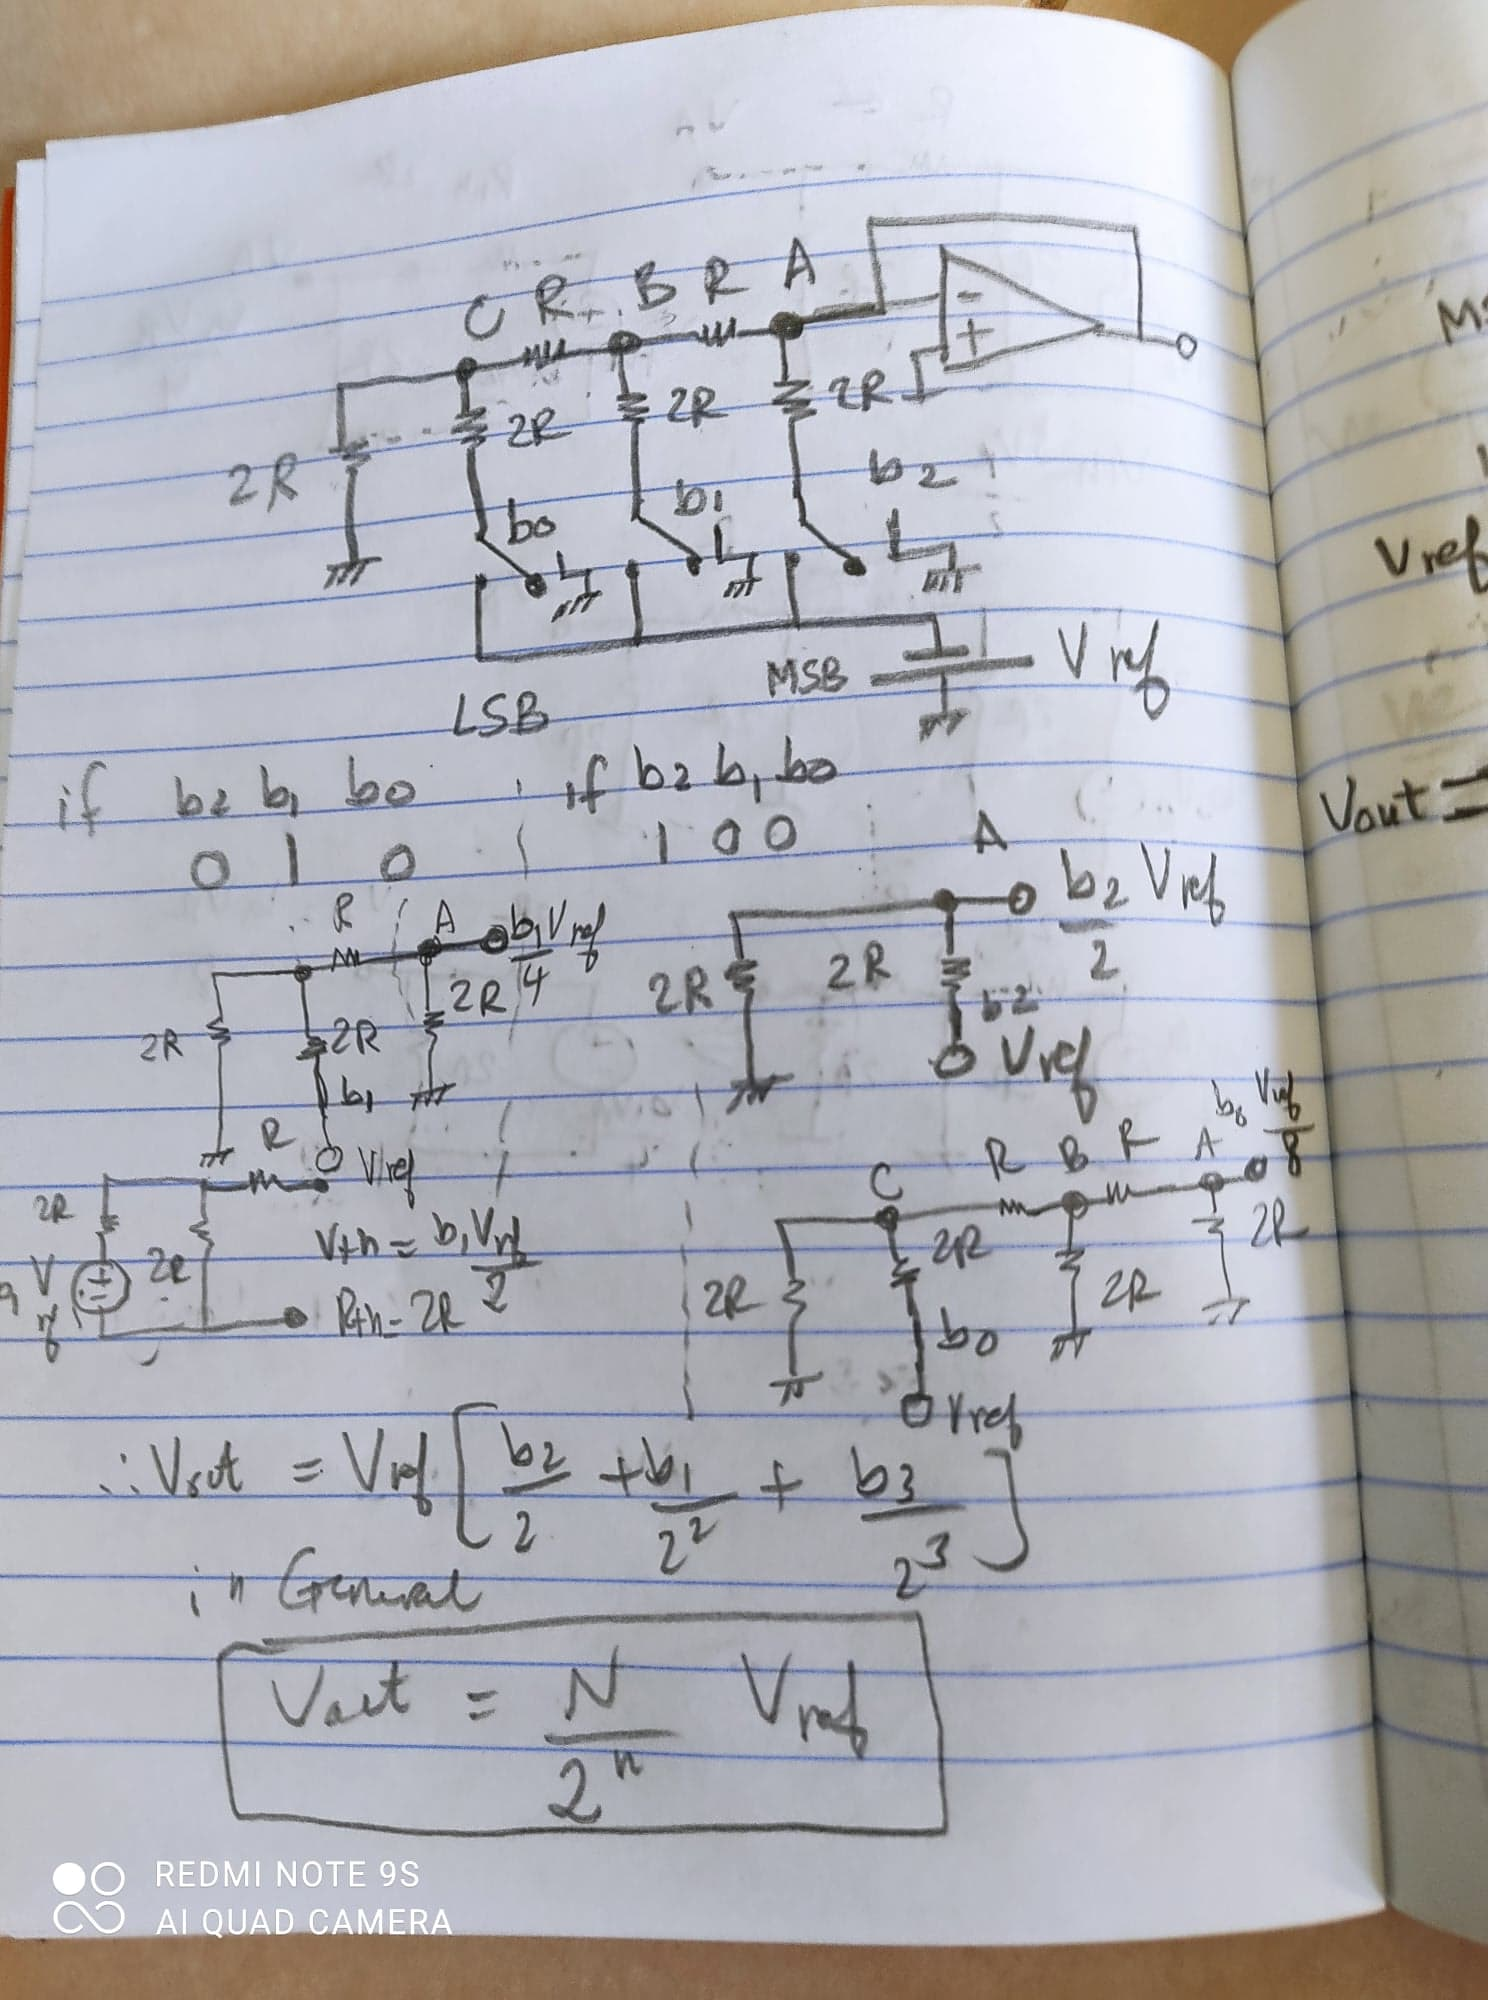 C R B R A
-
+
2R 2R 2R 2R
b0 b1 b2
LSB MSB Vref
if b2 b1 b0 if b2 b1 b0
0 1 0 1 0 0
R A b1Vref/4
2R 2R 2R
b1
Vref
A b2Vref/2
2R 2R
b2
Vref
R
2R 2R
V
Vth = b1Vref/2
Rth = 2R
C R B R A b0 Vref/8
2R 2R 2R 2R
b0
Vref
∴ Vout = Vref [ b2/2 + b1/2² + b3/2³ ]
in General
Vout = N/2ⁿ Vref
Vref
Vout =
REDMI NOTE 9S
AI QUAD CAMERA